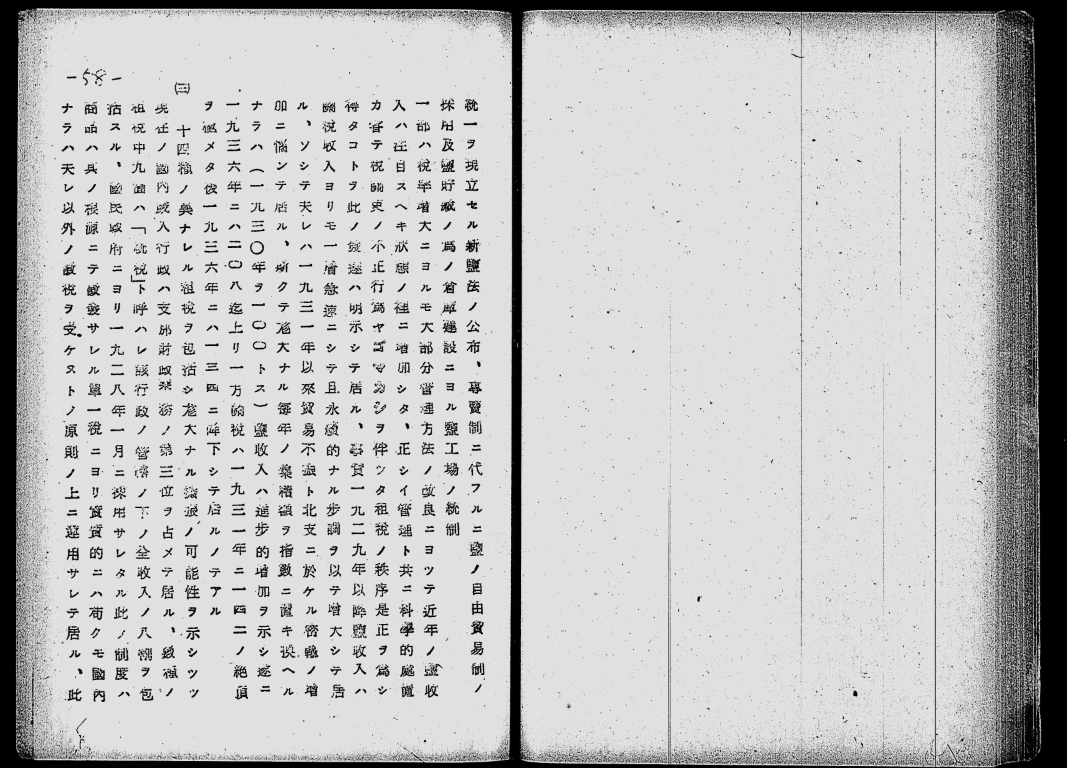 統一ヲ現立セル新鹽法ノ公布、專賣制ニ代フルニ鹽ノ自由貿易制ノ
採用及鹽貯藏ノ爲ノ倉庫建設ニヨル鹽工場ノ統制
一部ハ税率增大ニヨルモ大部分管理方法ノ改良ニヨツテ近年ノ鹽收
入ハ注目スヘキ狀態ノ裡ニ增加シタ、正シイ管理ト共ニ科學的處置
カ嘗テ税關吏ノ不正行爲ヤゴマカシヲ伴ツタ租税ノ秩序是正ヲ爲シ
得タコトヲ此ノ發達ハ明示シテ居ル、事實一九二九年以降鹽收入ハ
關税收入ヨリモ一層急速ニシテ且永續的ナル步調ヲ以テ增大シテ居
ル、ソシテ夫レハ一九三一年以來貿易不振ト北支ニ於ケル密輸ノ增
加ニ惱ンテ居ル、斯クテ尨大ナル每年ノ集積額ヲ指數ニ置キ換ヘル
ナラハ(一九三〇年ヲ一〇〇トス)鹽收入ハ進步的增加ヲ示シ遂ニ
一九三六年ニハ二〇八迄上リ一方關税ハ一九三一年ニ一四二ノ絕頂
ヲ極メタ後一九三六年ニハ一三四ニ降下シテ居ルノテアル
(三)
十四種ノ異ナレル租税ヲ包括シ尨大ナル擴張ノ可能性ヲ示シツツ
現在ノ國內收入行政ハ支那財政業務ノ第三位ヲ占メテ居ル、數種ノ
租税中九個ハ「統税」ト呼ハレ該行政ノ管轄ノ下ノ全收入ノ八割ヲ包
括スル、國民政府ニヨリ一九二八年一月ニ採用サレタル此ノ制度ハ
商品ハ其ノ根源ニテ賦錢サレル單一税ニヨリ實質的ニハ苟クモ國內
ナラハ夫レ以外ノ賦税ヲ受ケストノ原則ノ上ニ運用サレテ居ル、此
-58-